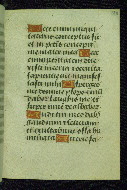 Ecce enim iniqui
tatibus conceptus su
et in peccatis concepit
me mater mea Ecce
enim veritatem dile
xisti incerta et occulta
sapientie tue manifes
tasti michi Asperges
me domine ysopo et mun
dabor lavabis me et
super nivem dealbabor
Auditui meo dabis
gaudium et leticiam
et exultabunt ossa hu
miliata Averte fa